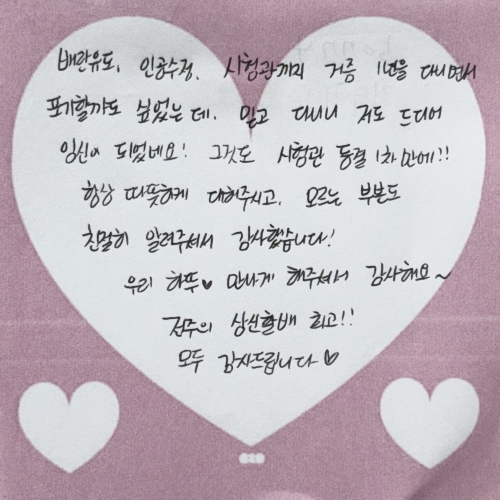 배란유도, 인공수정, 시험관까지 거즘 1년을 다니면서
포기할까도 싶었는데, 믿고 다니니 저도 드디어
임신이 되었네요! 그것도 시험관 동결 1차만에!!
항상 따뜻하게 대해주시고, 모르는 부분도
친절히 알려주셔서 감사했습니다!
우리 하뚜♥ 만나게 해주셔서 감사해요~
전주의 삼신할배 최고!!
모두 감사드립니다♥